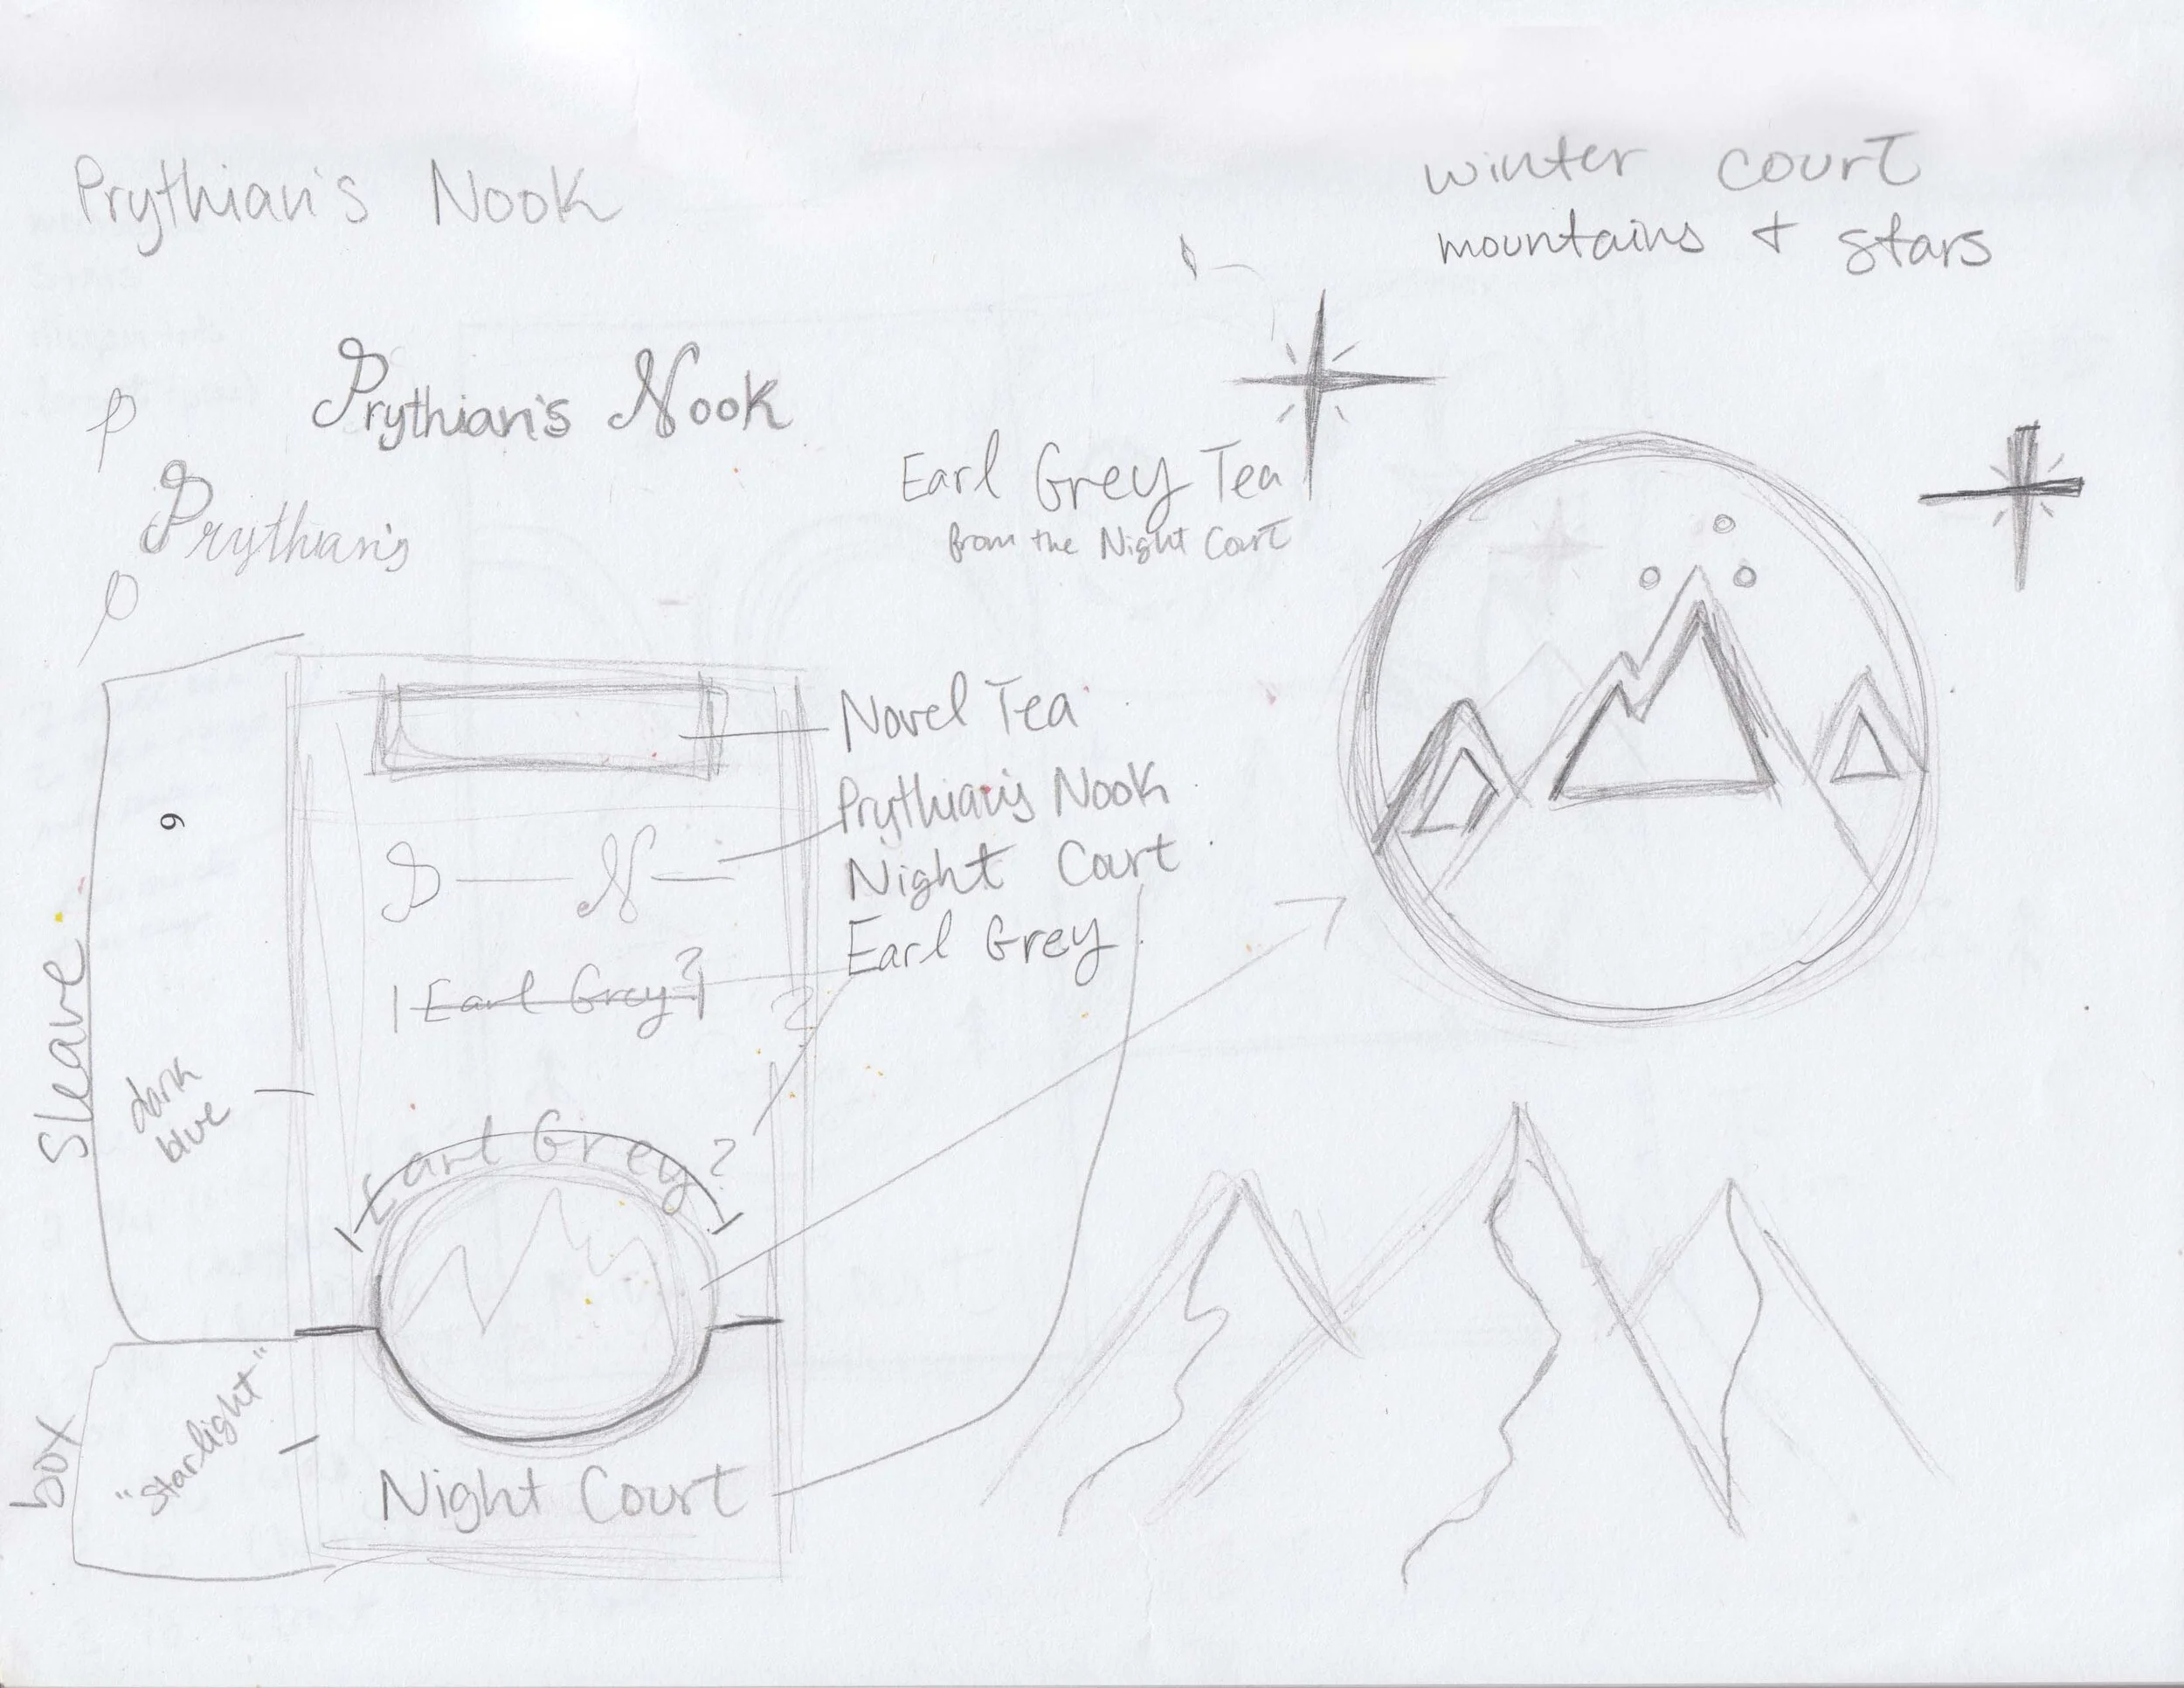 Prythian's Nook
winter court
mountains + stars
Prythian's Nook
P
Prythian's
P
Earl Grey Tea
from the Night Court
Novel Tea
Prythian's Nook
Night Court
Earl Grey
P N
Earl Grey?
?
Earl Grey?
6
Sleave
dark
blue
box
"Starlight"
Night Court